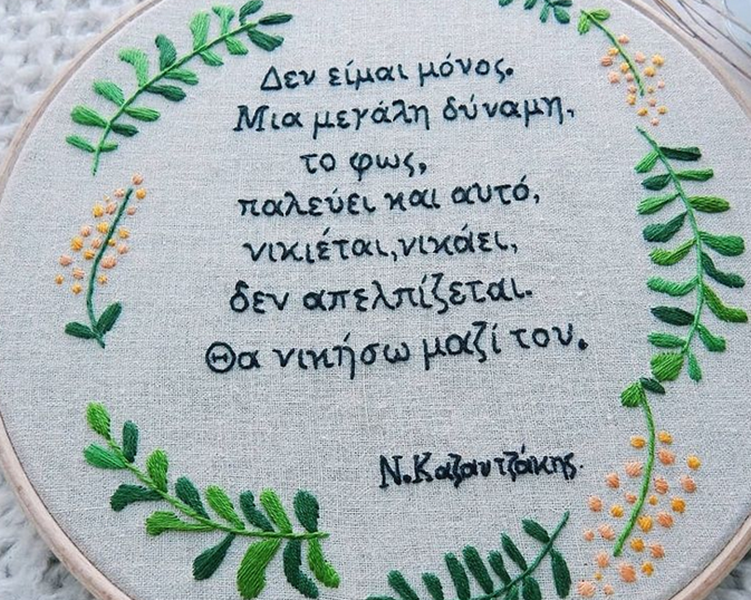 Δεν είμαι μόνος.
Μια μεγάλη δύναμη,
το φως,
παλεύει και αυτό,
νικιέται, νικάει,
δεν απελπίζεται.
Θα νικήσω μαζί του.
Ν. Καζαντζάκης.